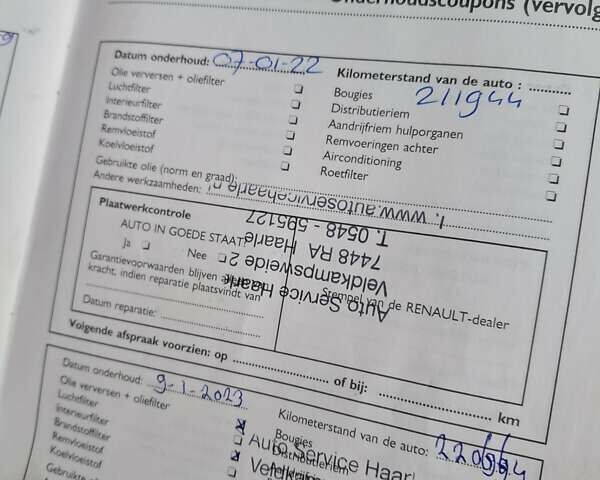 Onderhoudscoupons (vervolg
Datum onderhoud: 07-01-22
Kilometerstand van de auto : 211944
Olie verversen + oliefilter
Luchtfilter
Interieurfilter
Brandstoffilter
Remvloeistof
Koelvloeistof
Bougies
Distributieriem
Aandrijfriem hulporganen
Remvoeringen achter
Airconditioning
Roetfilter
Gebruikte olie (norm en graad):
Andere werkzaamheden:
Auto Service Haarle
Veldkampsweide 2
7448 RA Haarle
T. 0548 - 595127
I. www.autoservicehaarle.nl
Plaatwerkcontrole
AUTO IN GOEDE STAAT:
Ja
Nee
Garantievoorwaarden blijven
kracht, indien reparatie plaatsvindt van
Datum reparatie:
Stempel van de RENAULT-dealer
Volgende afspraak voorzien: op
of bij:
km
Datum onderhoud: 9-1-2023
Kilometerstand van de auto:
Olie verversen + oliefilter
Luchtfilter
Interieurfilter
Brandstoffilter
Remvloeistof
Koelvloeistof
Gebruikte
Bougies
Distributieriem
Auto Service Haarl